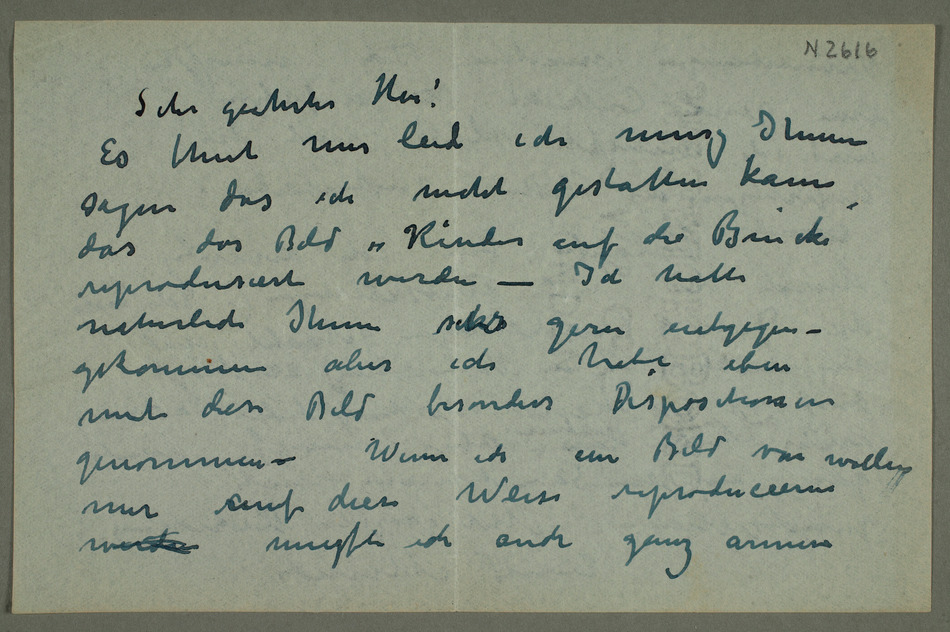 N 2616
Sehr geehrter Herr!
Es thut mir leid ich muss Ihnen
sagen das ich nicht gestatten kann
das das Bild „Kinder auf die Brücke
reproduziert werden — Ich hatte
naturlich Ihnen sehr gern entgegen-
gekommen aber ich habe eben
mit dies Bild besonders Dispositionen
genommen — Wenn ich ein Bild von
mir auf diese Weise reproduceeren
ich auch ganz